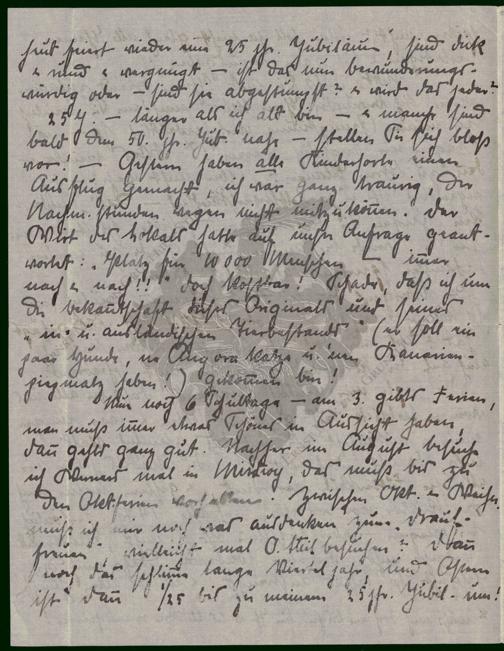 heut feiert wieder eine 25 jhr. Jubiläum, sind dick
u. rund u. vergnügt – ist das nun bewunderungs-
würdig oder – sind sie abgestumpft? u. wird das jeder?
25 J. – länger als ich alt bin – u. manche sind
bald dem 50. jhr. Jub. nahe – stellen Sie sich bloß
vor! – Gestern haben alle Kinderhorte einen
Ausflug gemacht, ich war ganz traurig, der
Nachm. stunden wegen nicht mitzukönnen. Der
Wirt des Lokals hatte auf unsre Anfrage geant-
wortet: „Platz für 10 000 Menschen – immer
nach u. nach!!" doch kostbar! Schade, daß ich um
die Bekanntschaft dieses Originals und seines
„in- u. ausländischen Tierbestands" (er soll ein
paar Hunde, ne Angorakatze u. 'nen Kanarien-
piepmatz haben!) gekommen bin!
Nun noch 6 Schultage – am 3. gibts Ferien,
man muß immer etwas Schönes in Aussicht haben,
dann gehts ganz gut. Nachher im August besuche
ich Werners mal in, das muß bis zu
den Oktferien vorhalten. Zwischen Okt. u. Weihn.
muß ich mir noch was ausdenken zum „drauf-
freuen" vielleicht mal O. besuchen? Dann
noch das schlimme lange Vierteljahr und Ostern
ist dann 1/25 bis zu meinem 25 jhr. Jubil. um!